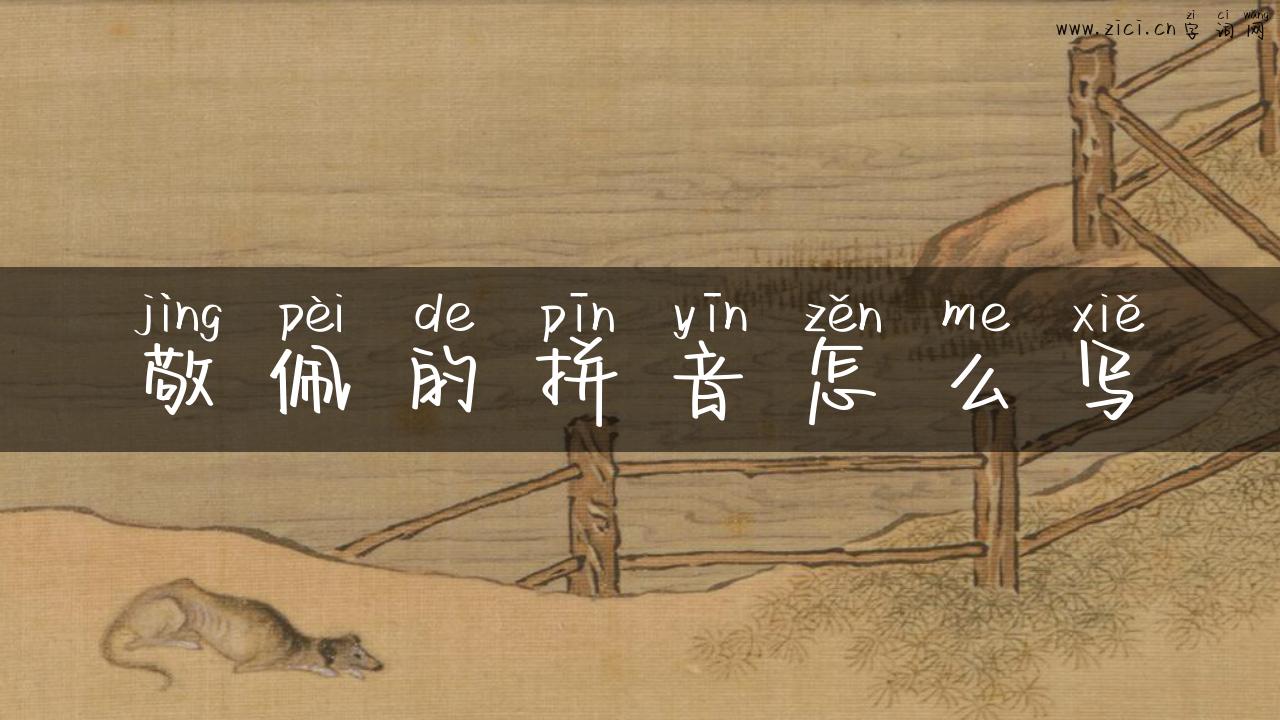 zi ci wang
www.zici.cn字词网
jìng pèi de pīn yīn zěn me xiě
敬佩的拼音怎么写